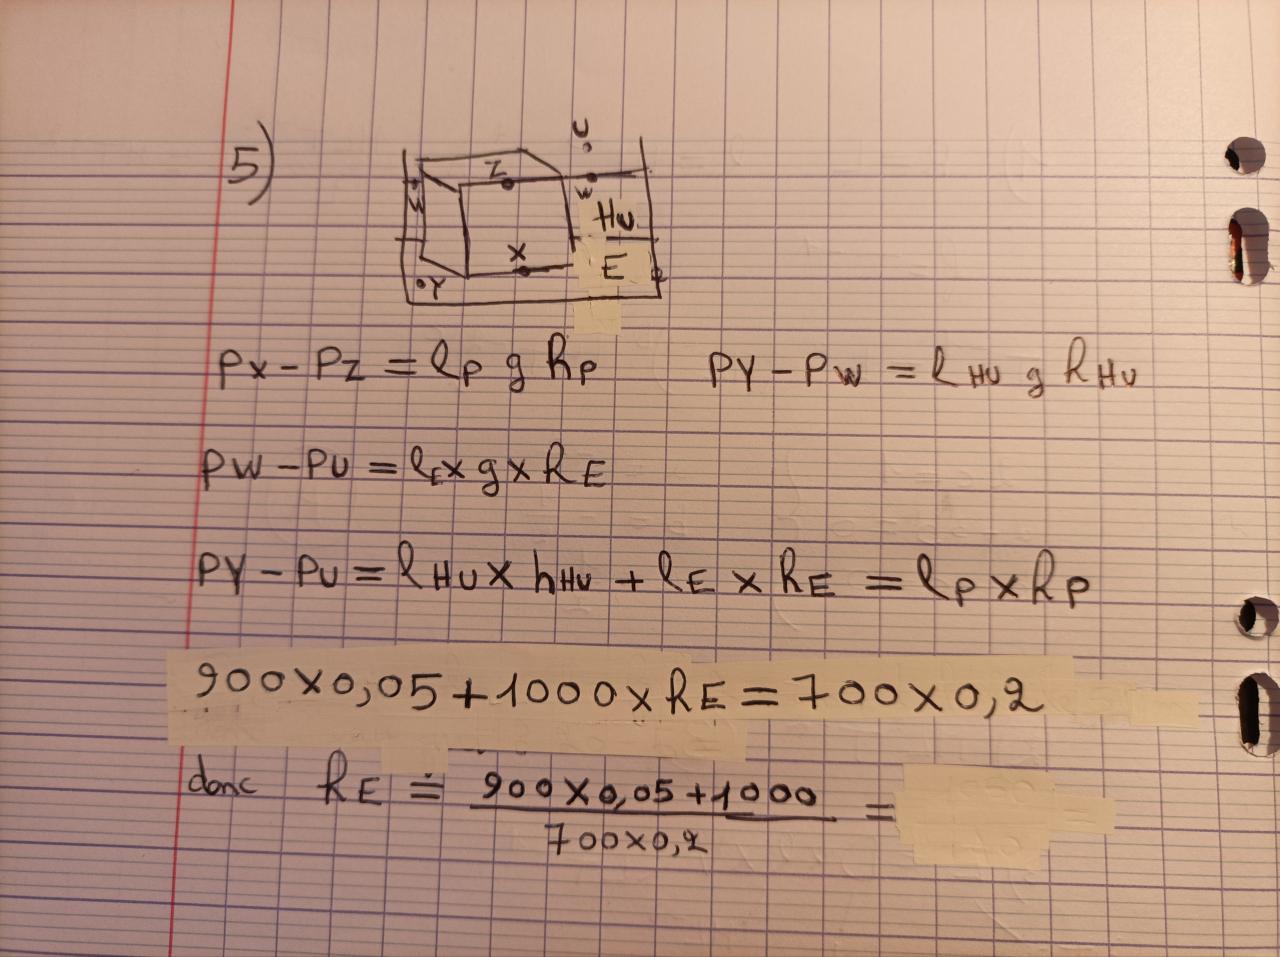 5)
U
Z
W
W
Hu
X
E
Y
PX - PZ = ρP g hP PY - PW = ρHU g hHU
PW - PU = ρE x g x hE
PY - PU = ρHU x hHU + ρE x hE = ρP x hP
900 x 0,05 + 1000 x hE = 700 x 0,2
donc hE = 900 x 0,05 + 1000 =
700 x 0,2